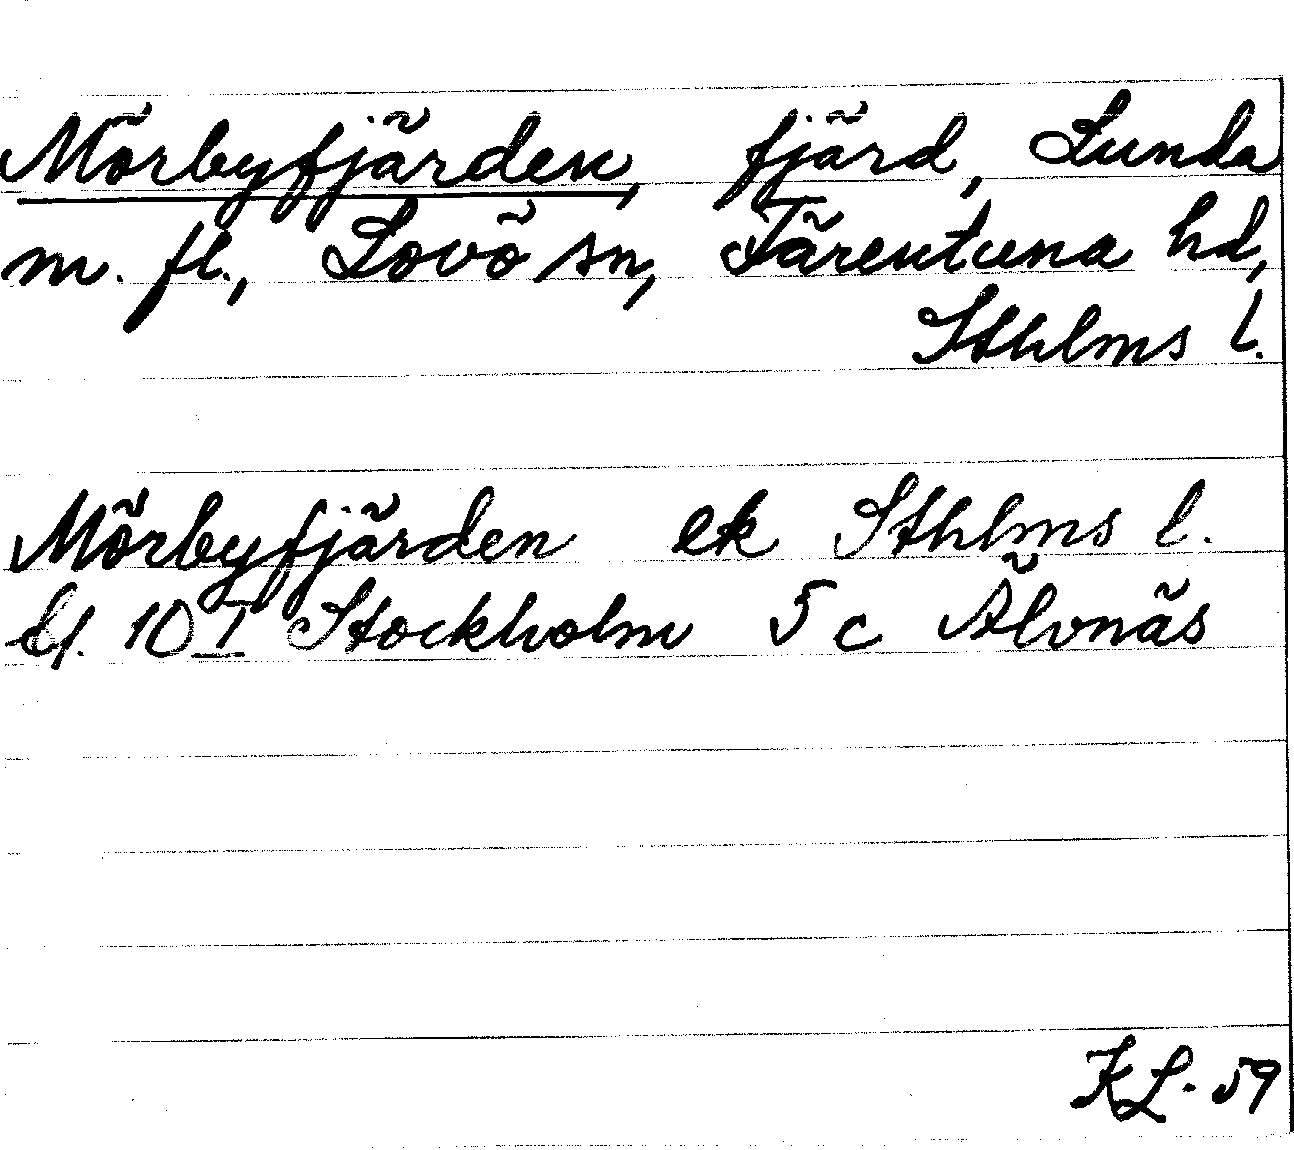 Mörbyfjärden, fjärd, Lunda
m. fl., Lovö sn, Färentuna hd,
Sthlms l.
Mörbyfjärden ek Sthlms l.
bl. 10 I Stockholm 5 c Älvnäs
KL. 59